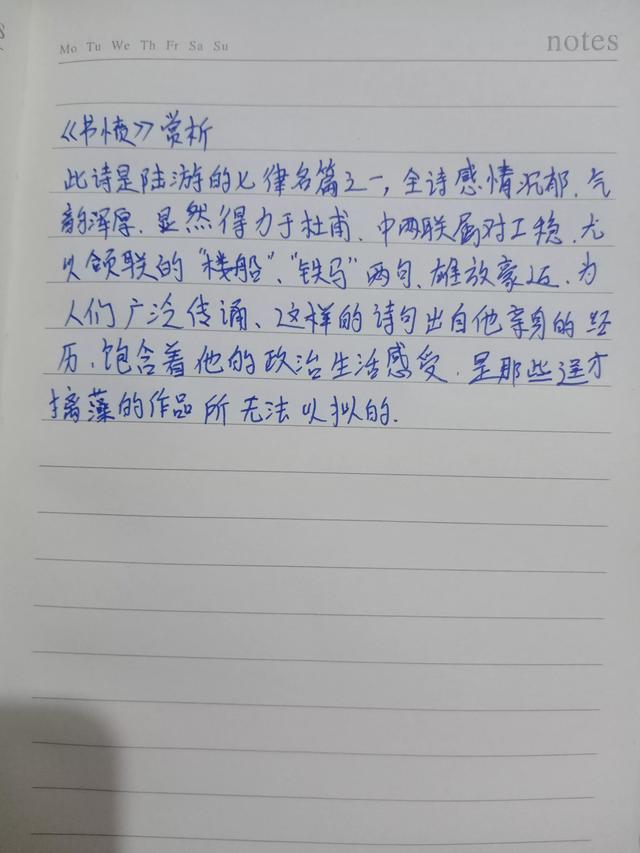 Mo Tu We Th Fr Sa Su
notes
《书愤》赏析
此诗是陆游的七律名篇之一,全诗感情沉郁.气
韵浑厚.显然得力于杜甫.中两联属对工稳.尤
以颔联的“楼船”、“铁马”两句、雄放豪迈.为
人们广泛传诵、这样的诗句出自他亲身的经
历.饱含着他的政治生活感受.是那些逞才
摛藻的作品所无法以拟的.